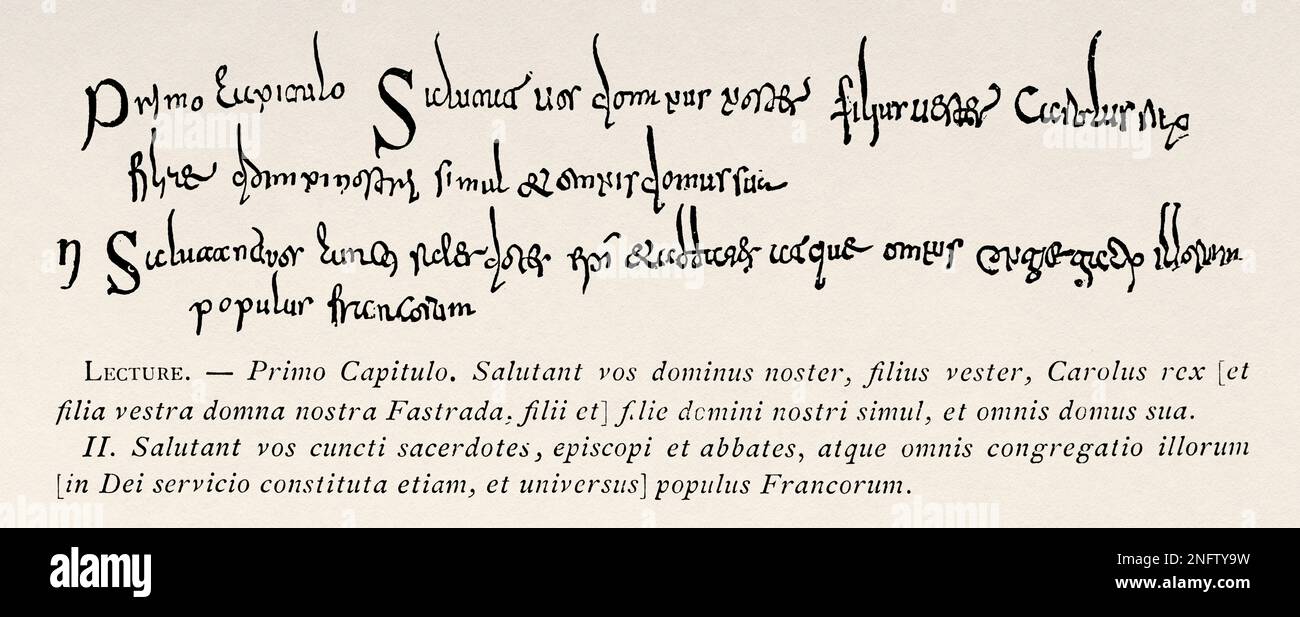 Primo Capitulo Salutant vos domnus noster filius vester Carolus rex
filie domni nostri simul et omnis domus sua
II Salutant vos cuncti sacerdotes epi et abbates atque omnis congregatio illorum
populus francorum
LECTURE. — Primo Capitulo. Salutant vos dominus noster, filius vester, Carolus rex [et
filia vestra domna nostra Fastrada, filii et] filie domini nostri simul, et omnis domus sua.
II. Salutant vos cuncti sacerdotes, episcopi et abbates, atque omnis congregatio illorum
[in Dei servicio constituta etiam, et universus] populus Francorum.
alamy
Image ID: 2NFTY9W
www.alamy.com